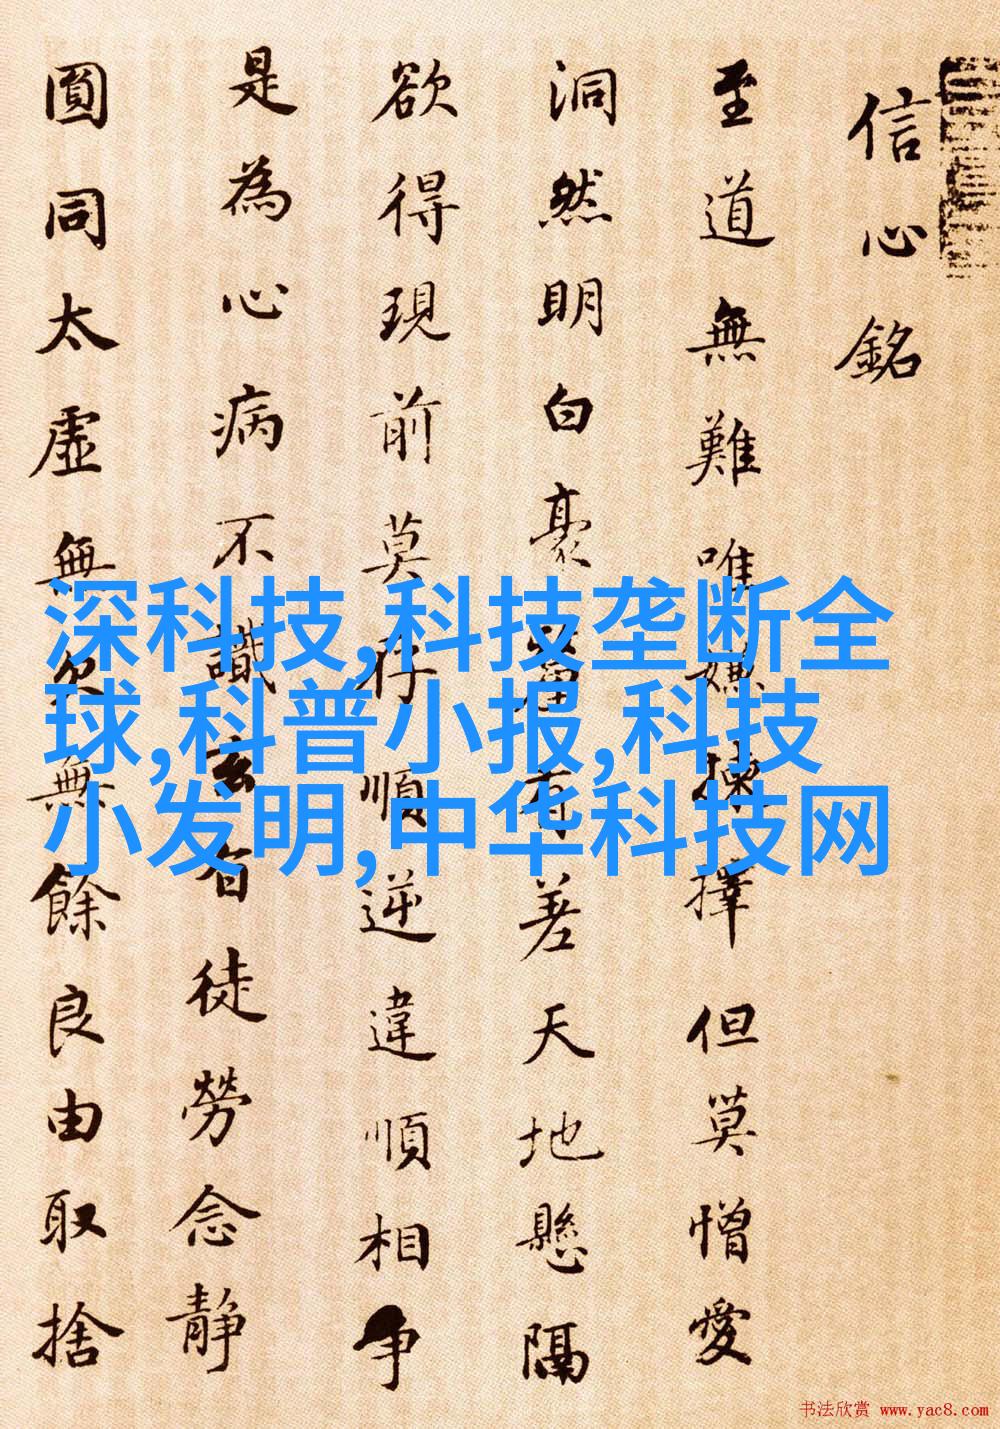 信心銘
至道無難唯嫌揀擇但莫憎愛
洞然明白豪釐有差天地懸隔
欲得現前莫存順逆違順相爭
是為心病不識玄旨徒勞念静
圓同太虛無欠無餘良由取捨
深科技,科技垄断全
球,科普小报,科技
小发明,中华科技网
书法欣赏 www.yac8.com